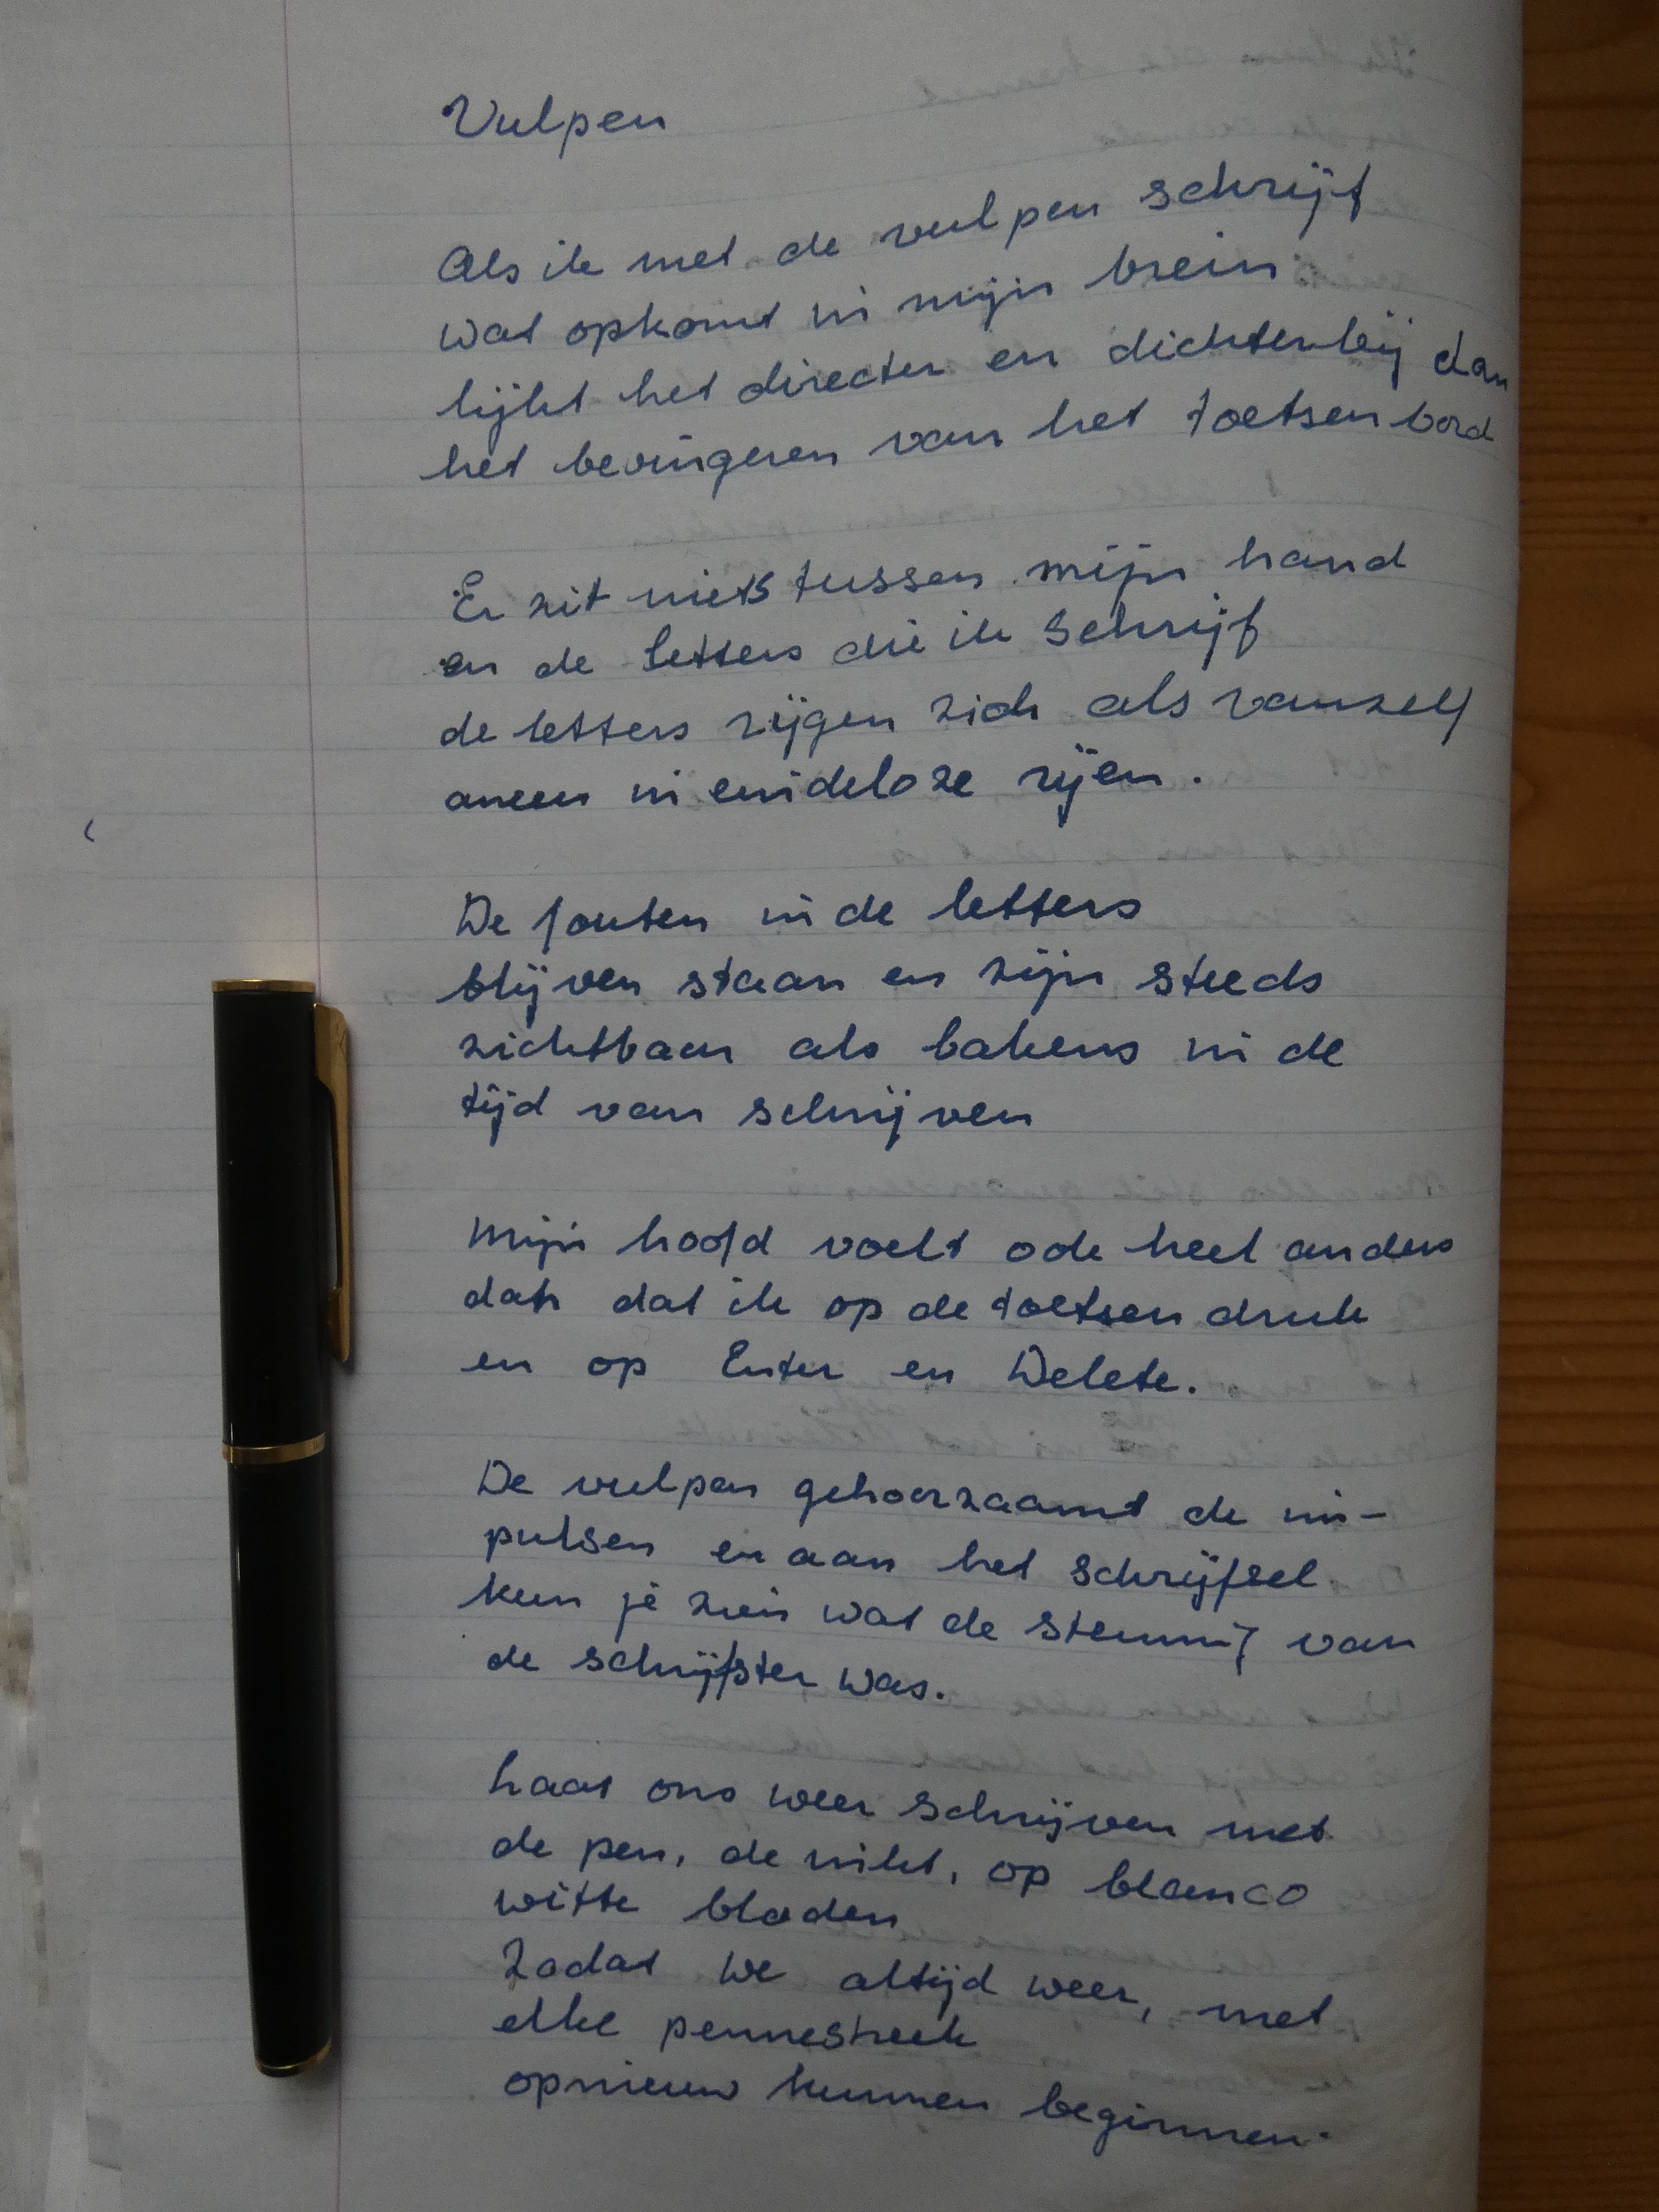 Vulpen
Als ik met de vulpen schrijf
wat opkomt in mijn brein
lijkt het directer en dichterbij dan
het bevingeren van het toetsenbord
Er zit niets tussen mijn hand
en de letters die ik schrijf
de letters rijgen zich als vanzelf
aneen in eindeloze rijen.
De fouten in de letters
blijven staan en zijn steeds
zichtbaar als bakens in de
tijd van schrijven
Mijn hoofd voelt ook heel anders
dan dat ik op de toetsen druk
en op Enter en Delete.
De vulpen gehoorzaamt de im-
pulsen en aan het schrijfsel
kun je zien wat de stemming van
de schrijfster was.
Laat ons weer schrijven met
de pen, de inkt, op blanco
witte bladen
Zodat we altijd weer, met
elke pennestreek
opnieuw kunnen beginnen.